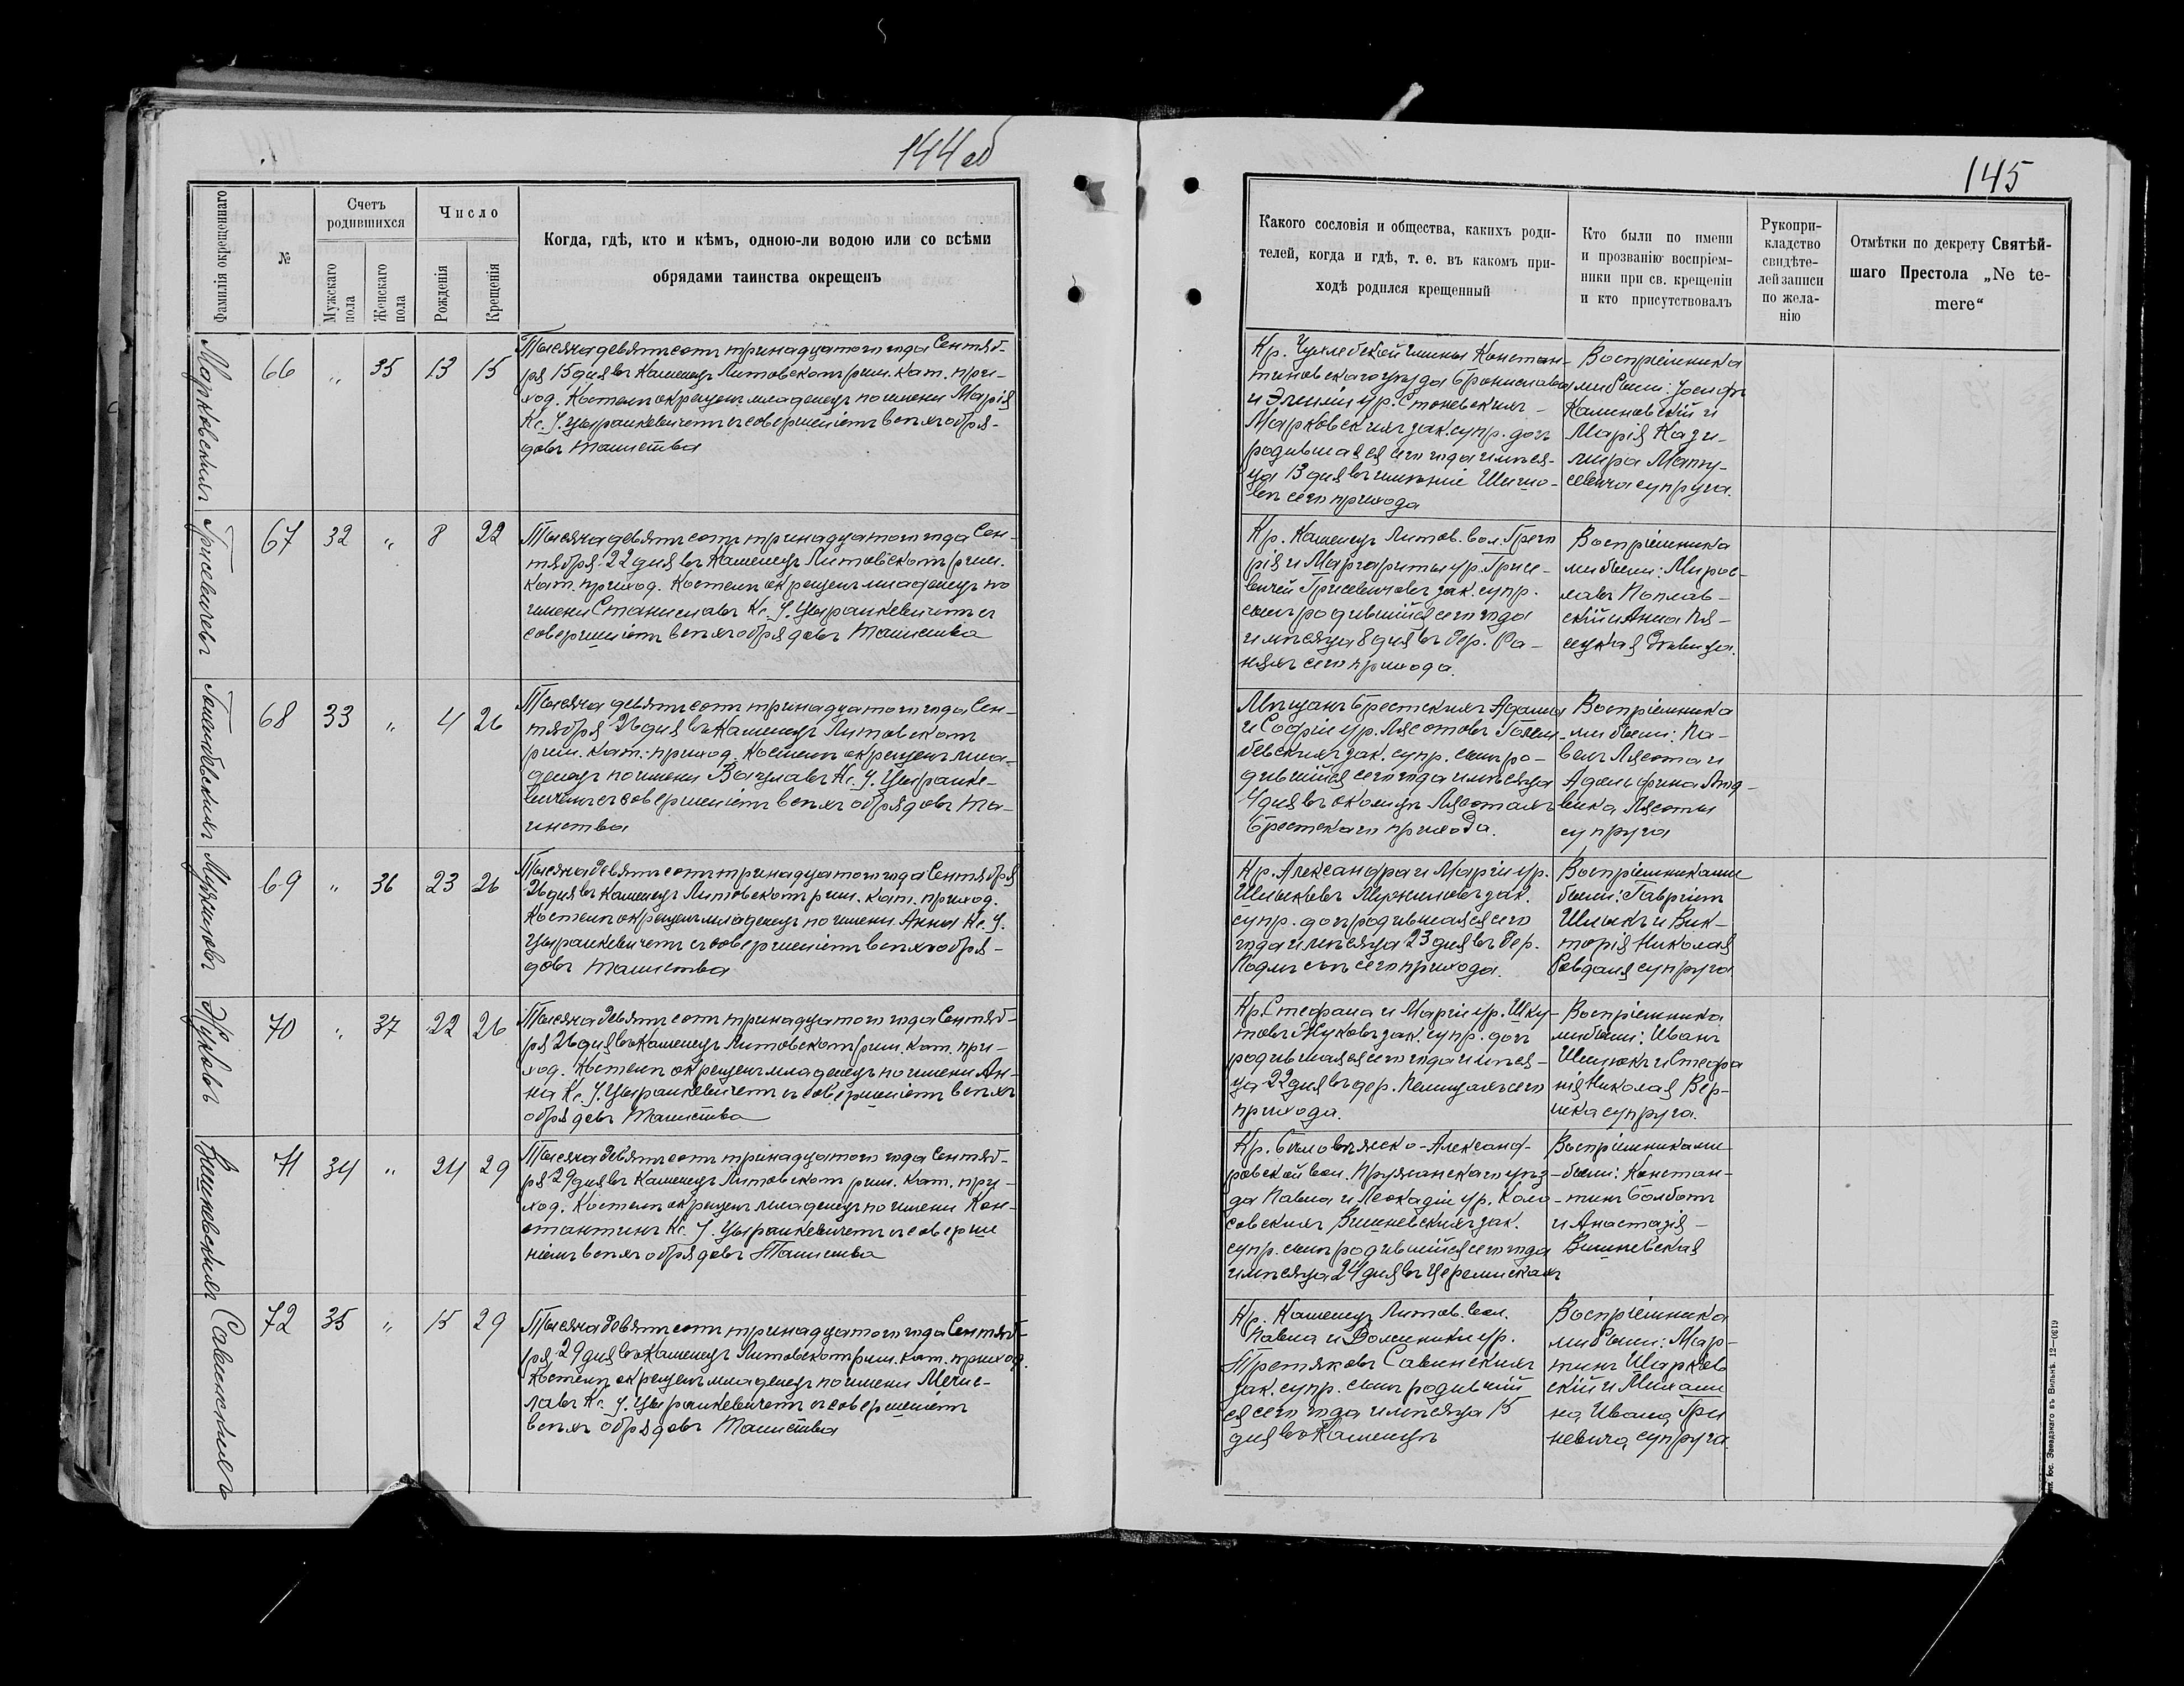 144 об
Фамилія крещеннаго
№
Счетъ родившихся
Мужскаго пола
Женскаго пола
Число
Рожденія
Крещенія
Когда, гдѣ, кто и кѣмъ, одною-ли водою или со всѣми
обрядами таинства окрещенъ
Марковскихъ
66 „ 35 13 15
Тысяча девятьсотъ тринадцатого года Сентяб-
ря 15 дня въ Каменецъ Литовскомъ рим. кат. при-
ход. Костелѣ окрещенъ младенецъ по имени Марія
Кс. У. Цыранкевичемъ съ совершеніемъ всѣхъ обря-
довъ Таинства
Грисевичевъ
67 32 „ 8 22
Тысяча девятьсотъ тринадцатого года Сен-
тября 22 дня въ Каменецъ Литовскомъ рим.
кат. приход. Костелѣ окрещенъ младенецъ по
имени Станиславъ Кс. У. Цыранкевичемъ съ
совершеніемъ всѣхъ обрядовъ Таинства
68 33 „ 4 26
Тысяча девятьсотъ тринадцатого года Сен-
тября 26 дня въ Каменецъ Литовскомъ
рим. кат. приход. Костелѣ окрещенъ мла-
денецъ по имени Вацлавъ Кс. У. Цыранке-
вичемъ съ совершеніемъ всѣхъ обрядовъ Та-
инства
69 „ 36 23 26
Тысяча девятьсотъ тринадцатого года Сентября
26 дня въ Каменецъ Литовскомъ рим. кат. приход.
Костелѣ окрещенъ младенецъ по имени Анна Кс. У.
Цыранкевичемъ съ совершеніемъ всѣхъ обря-
довъ Таинства
Жуковъ
70 „ 37 22 26
Тысяча девятьсотъ тринадцатого года Сентяб-
ря 26 дня въ Каменецъ Литовскомъ рим. кат. при-
ход. Костелѣ окрещенъ младенецъ по имени Ан-
на Кс. У. Цыранкевичемъ съ совершеніемъ всѣхъ
обрядовъ Таинства
Вишневскихъ
71 34 „ 24 29
Тысяча девятьсотъ тринадцатого года Сентяб-
ря 29 дня въ Каменецъ Литовскомъ рим. кат. при-
ход. Костелѣ окрещенъ младенецъ по имени Кон-
стантинъ Кс. У. Цыранкевичемъ съ соверше
ніемъ всѣхъ обрядовъ Таинства
Савинскихъ
72 35 „ 15 29
Тысяча девятьсотъ тринадцатого года Сентяб-
ря 29 дня въ Каменецъ Литовскомъ рим. кат. приход.
Костелѣ окрещенъ младенецъ по имени Мечис-
лавъ Кс. У. Цыранкевичемъ съ совершеніемъ
всѣхъ обрядовъ Таинства
145
Какого сословія и общества, какихъ роди-
телей, когда и гдѣ, т. е. въ какомъ при-
ходѣ родился крещенный
Кто были по имени
и прозванію воспріем-
ники при св. крещеніи
и кто присутствовалъ
Рукопри-
кладство
свидѣте-
лей записи
по жела-
нію
Отмѣтки по декрету Святѣй-
шаго Престола „Ne te-
mere“
Кр. гмины Констан-
тиновскаго уѣзда Бронислава
и Эмиліи ур. Стоневскихъ
Марковскихъ зак. супр. дочь
родившаяся сего года и мѣся-
ца 13 дня въ имѣніи Шишо-
вѣ сего прихода
Воспріемника
ми были: Іосифъ
Калиновскій и
Марія Кази-
мира Мату-
севича супруга.
Кр. Каменецъ Литов. вол. Григо
рія и Маргариты ур. Грисе-
вичей Грисевичевъ зак. супр.
сынъ родившійся сего года
и мѣсяца 8 дня въ дер. Ра-
сего прихода.
Воспріемника
ми были: Мирос-
лавъ Поплав-
скій и Анна Пя-
сецкая дѣвица.
Мѣщанъ Брестскихъ Адама
и Софіи ур. Лясотовъ
зак. супр. сынъ ро-
дившійся сего года и мѣсяца
4 дня въ околицѣ Лясотахъ
Брестскаго прихода.
Воспріемника
ми были: Па-
велъ Лясота и
Люд-
вика Лясоты
супруга
Кр. Александра и Маріи ур.
Шлыковъ зак.
супр. дочь родившаяся сего
года и мѣсяца 23 дня въ дер.
сего прихода.
Воспріемниками
были: Гавріилъ
Шлыкъ и Вик-
торія Николая
супруга
Кр. Стефана и Маріи ур. Шку-
товъ Жуковъ зак. супр. дочь
родившаяся сего года и мѣся-
ца 22 дня въ дер. сего
прихода.
Воспріемника
ми были: Иванъ
и Стефа
нія Николая
супруга.
Кр. Александ-
ровской вол. Пружанскаго уѣз-
да Павла и Леокадіи ур. Коло-
совскихъ Вишневскихъ зак.
супр. сынъ родившійся сего года
и мѣсяца 24 дня въ Черемискахъ
Воспріемниками
были: Констан-
тинъ Болботъ
и Анастазія
Вишневская
Кр. Каменецъ Литов. вол.
Павла и Доминики ур.
Третяковъ Савинскихъ
зак. супр. сынъ родившій
ся сего года и мѣсяца 15
дня въ Каменцѣ
Воспріемника
ми были: Мар-
тинъ Шарков
скій и Михали
на Ивана Гри
невича супруга